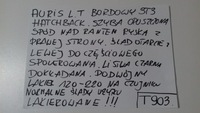 AURIS L.T BORDOWY 3T3
HATCHBACK. SZYBA OPUSZCZONA
SPÓD NAD RANTEM RYSKA Z
PRAWEJ STRONY. ŚLAD OTARCIE Z
LEWEJ DO CZĘŚCIOWEGO
SPOLEROWANIA. LISTWA CZARNA
DOKŁADANA. PODWÓJNY
LAKIER 120-220 NA CZUJNIKU
NORMALNE ŚLADY UŻYCIA
LAKIEROWANE!!!
T903